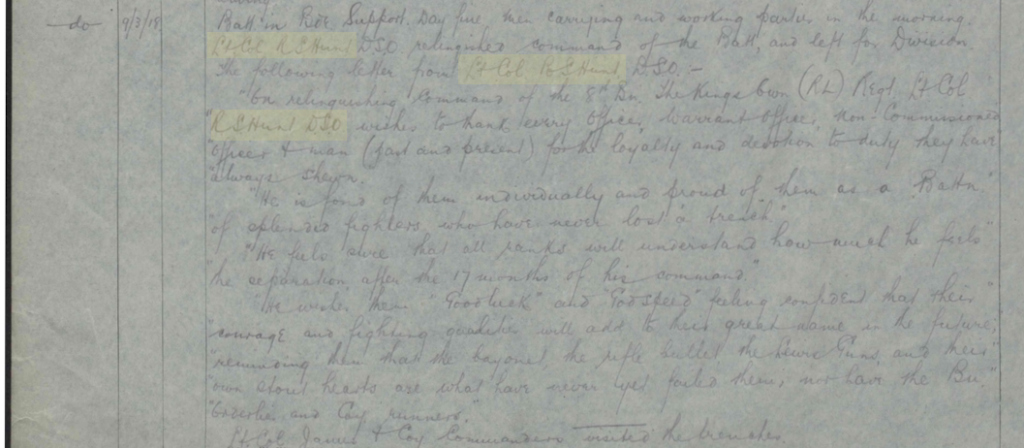 -do- 9/3/18 Batt" in Bde Support. Day fine, men carrying and working parties in the morning.
Lt Col R S Hunt DSO relinquished command of the Batt, and left for Division
The following letter from Lt Col R S Hunt, DSO. -
"On relinquishing command of the 8th Bn. The Kings Own (RL) Regt, Lt Col
"R S Hunt DSO wishes to thank every Officer, Warrant Officer, Non-Commissioned
"Officer & man (past and present) for the loyalty and devotion to duty they have"
"always shewn.
"He is fond of them individually and proud of them as a Battn"
"of splendid fighters, who have never lost a trench"
"He feels sure that all ranks will understand how much he feels"
"the separation after the 17 months of his command."
"He wishes them "Good luck" and "God speed" feeling confident that their"
"courage and fighting qualities will add to their great name in the future,"
"reminding them that the bayonet, the rifle bullet the Lewis Guns, and their"
"own stout hearts are what have never yet failed them, nor have the Bn."
and Coy runners."
Lt Col James & Coy Commanders visited the trenches.